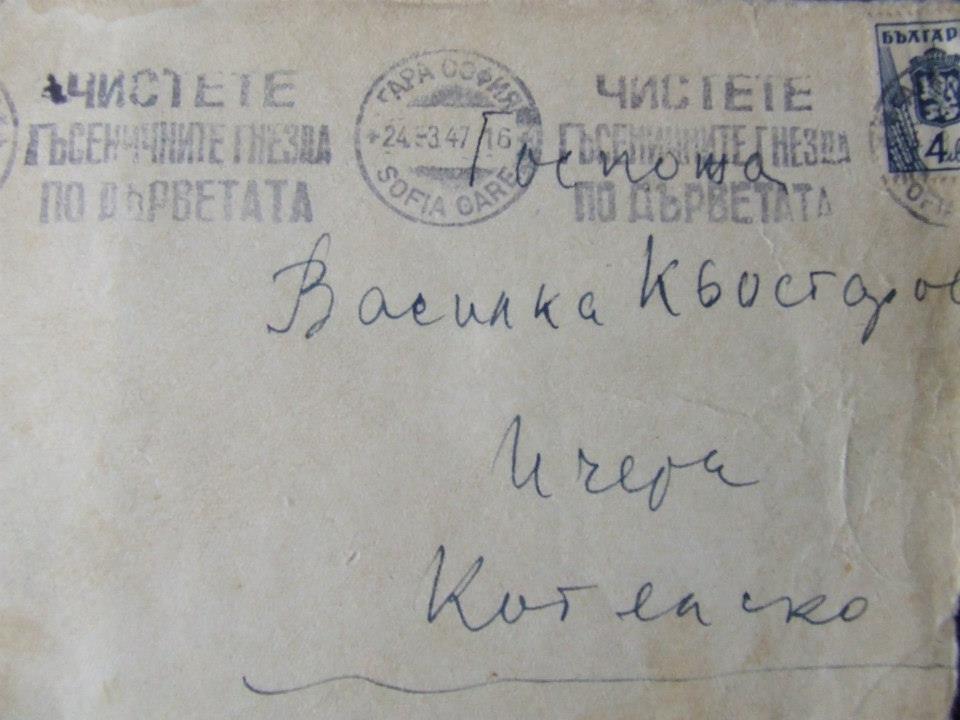 БЪЛГАР
4лв
ЧИСТЕТЕ
ГЪСЕНИЧНИТЕ ГНЕЗДА
ПО ДЪРВЕТАТА
ГАРА СОФИЯ
24.-3.47 16
SOFIA GARE
ЧИСТЕТЕ
ГЪСЕНИЧНИТЕ ГНЕЗДА
ПО ДЪРВЕТАТА
Госпожа
Василка Кьостаров
Ичера
Котленско